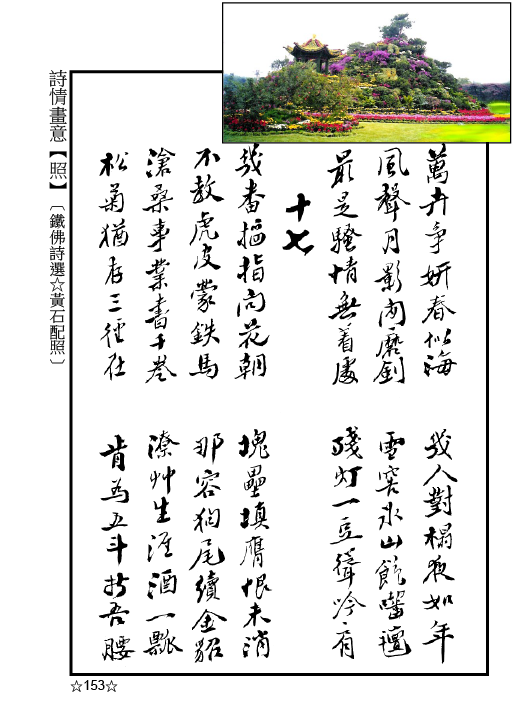 萬卉爭妍春似海　幾人對榻夜如年
風聲月影閑磨劍　雪窖冰山飽嚙氈
最是騷情無着處　殘灯一豆聳吟肩
十七
幾番掐指問花朝　塊壘填膺恨未消
不教虎皮蒙鉄馬　那容狗尾續金貂
滄桑事業書千卷　潦艸生涯酒一瓢
松菊猶存三徑在　肯為五斗折吾腰
詩情畫意【照】〔鐵佛詩選☆黃石配照〕
☆153☆